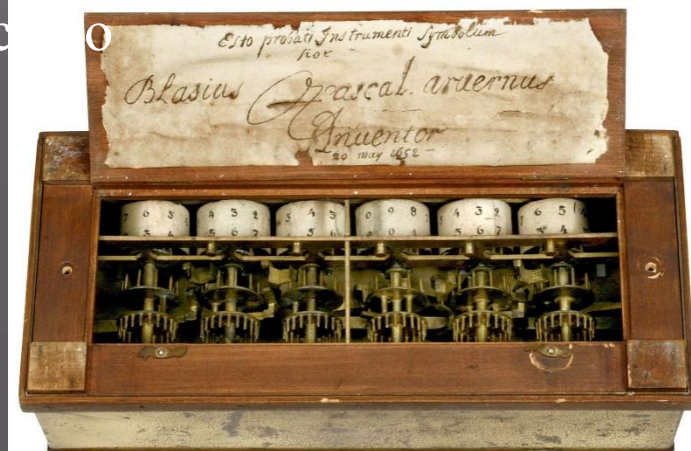 c o
Esto probati Instrumenti Symbolum
hoc
Blasius Pascal. arvernus
Inventor
20 may 1652
7 6 5 4 3 2 3 4 3 0 9 8 4 3 2 7 6 5